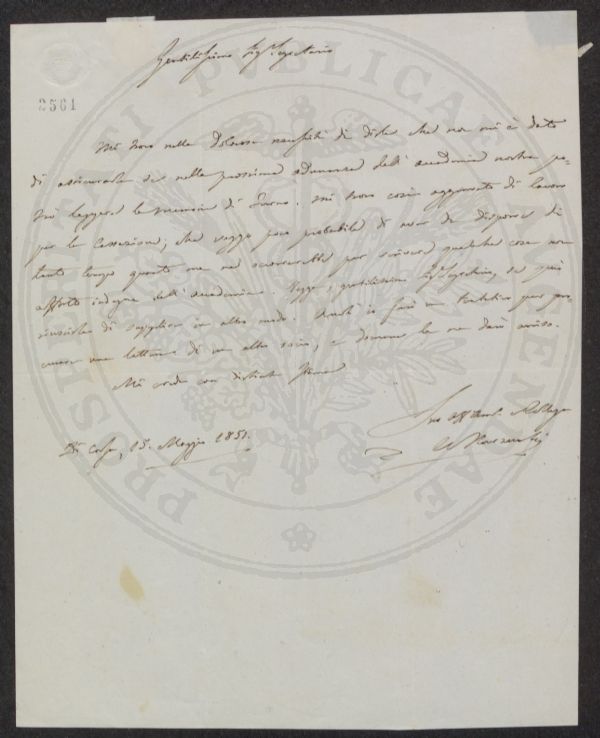 Gentilissimo Sigr Segretario
2561
Mi trovo nella dolorosa necessità di dirle che non mi è dato
di assicurarla se nella prossima adunanza dell'Accademia nostra po-
trò leggere la memoria di turno. Mi trovo così aggravato di lavoro
per la Cassazione, che veggo poco probabile di aver da disporre di
tanto tempo quanto me ne occorrerebbe per scrivere qualche cosa non
affatto indegna dell'Accademia. Vegga, gentilissimo Sigr Segretario, se può
di supplire in altro modo. Anch'io farò un tentativo per pro-
curare una lettura di un altro socio, e domani le ne darò avviso.
Mi creda con distinta stima
Suo Collega
Di Casa, 15. Maggio 1851.
PROSPERITATI PUBLICAE AUGENDAE